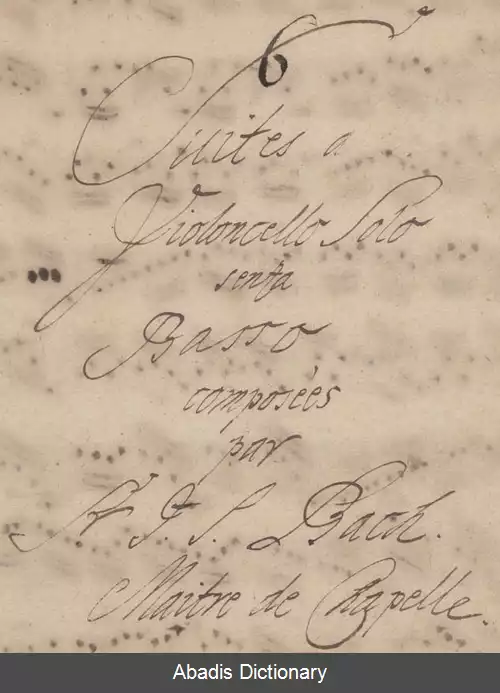 6
Suites a
Violoncello Solo
senza
Basso
composées
par
Sr J. S. Bach.
Maitre de Chapelle.
Abadis Dictionary